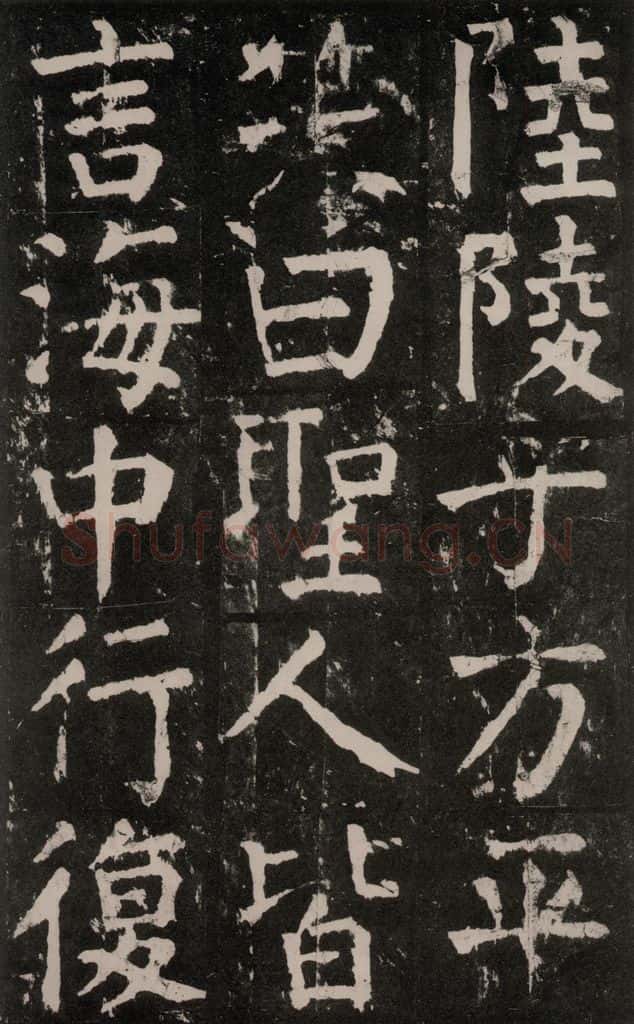 陸陵乎方平
笑曰聖人皆
言海中行復
Shufawang.CN